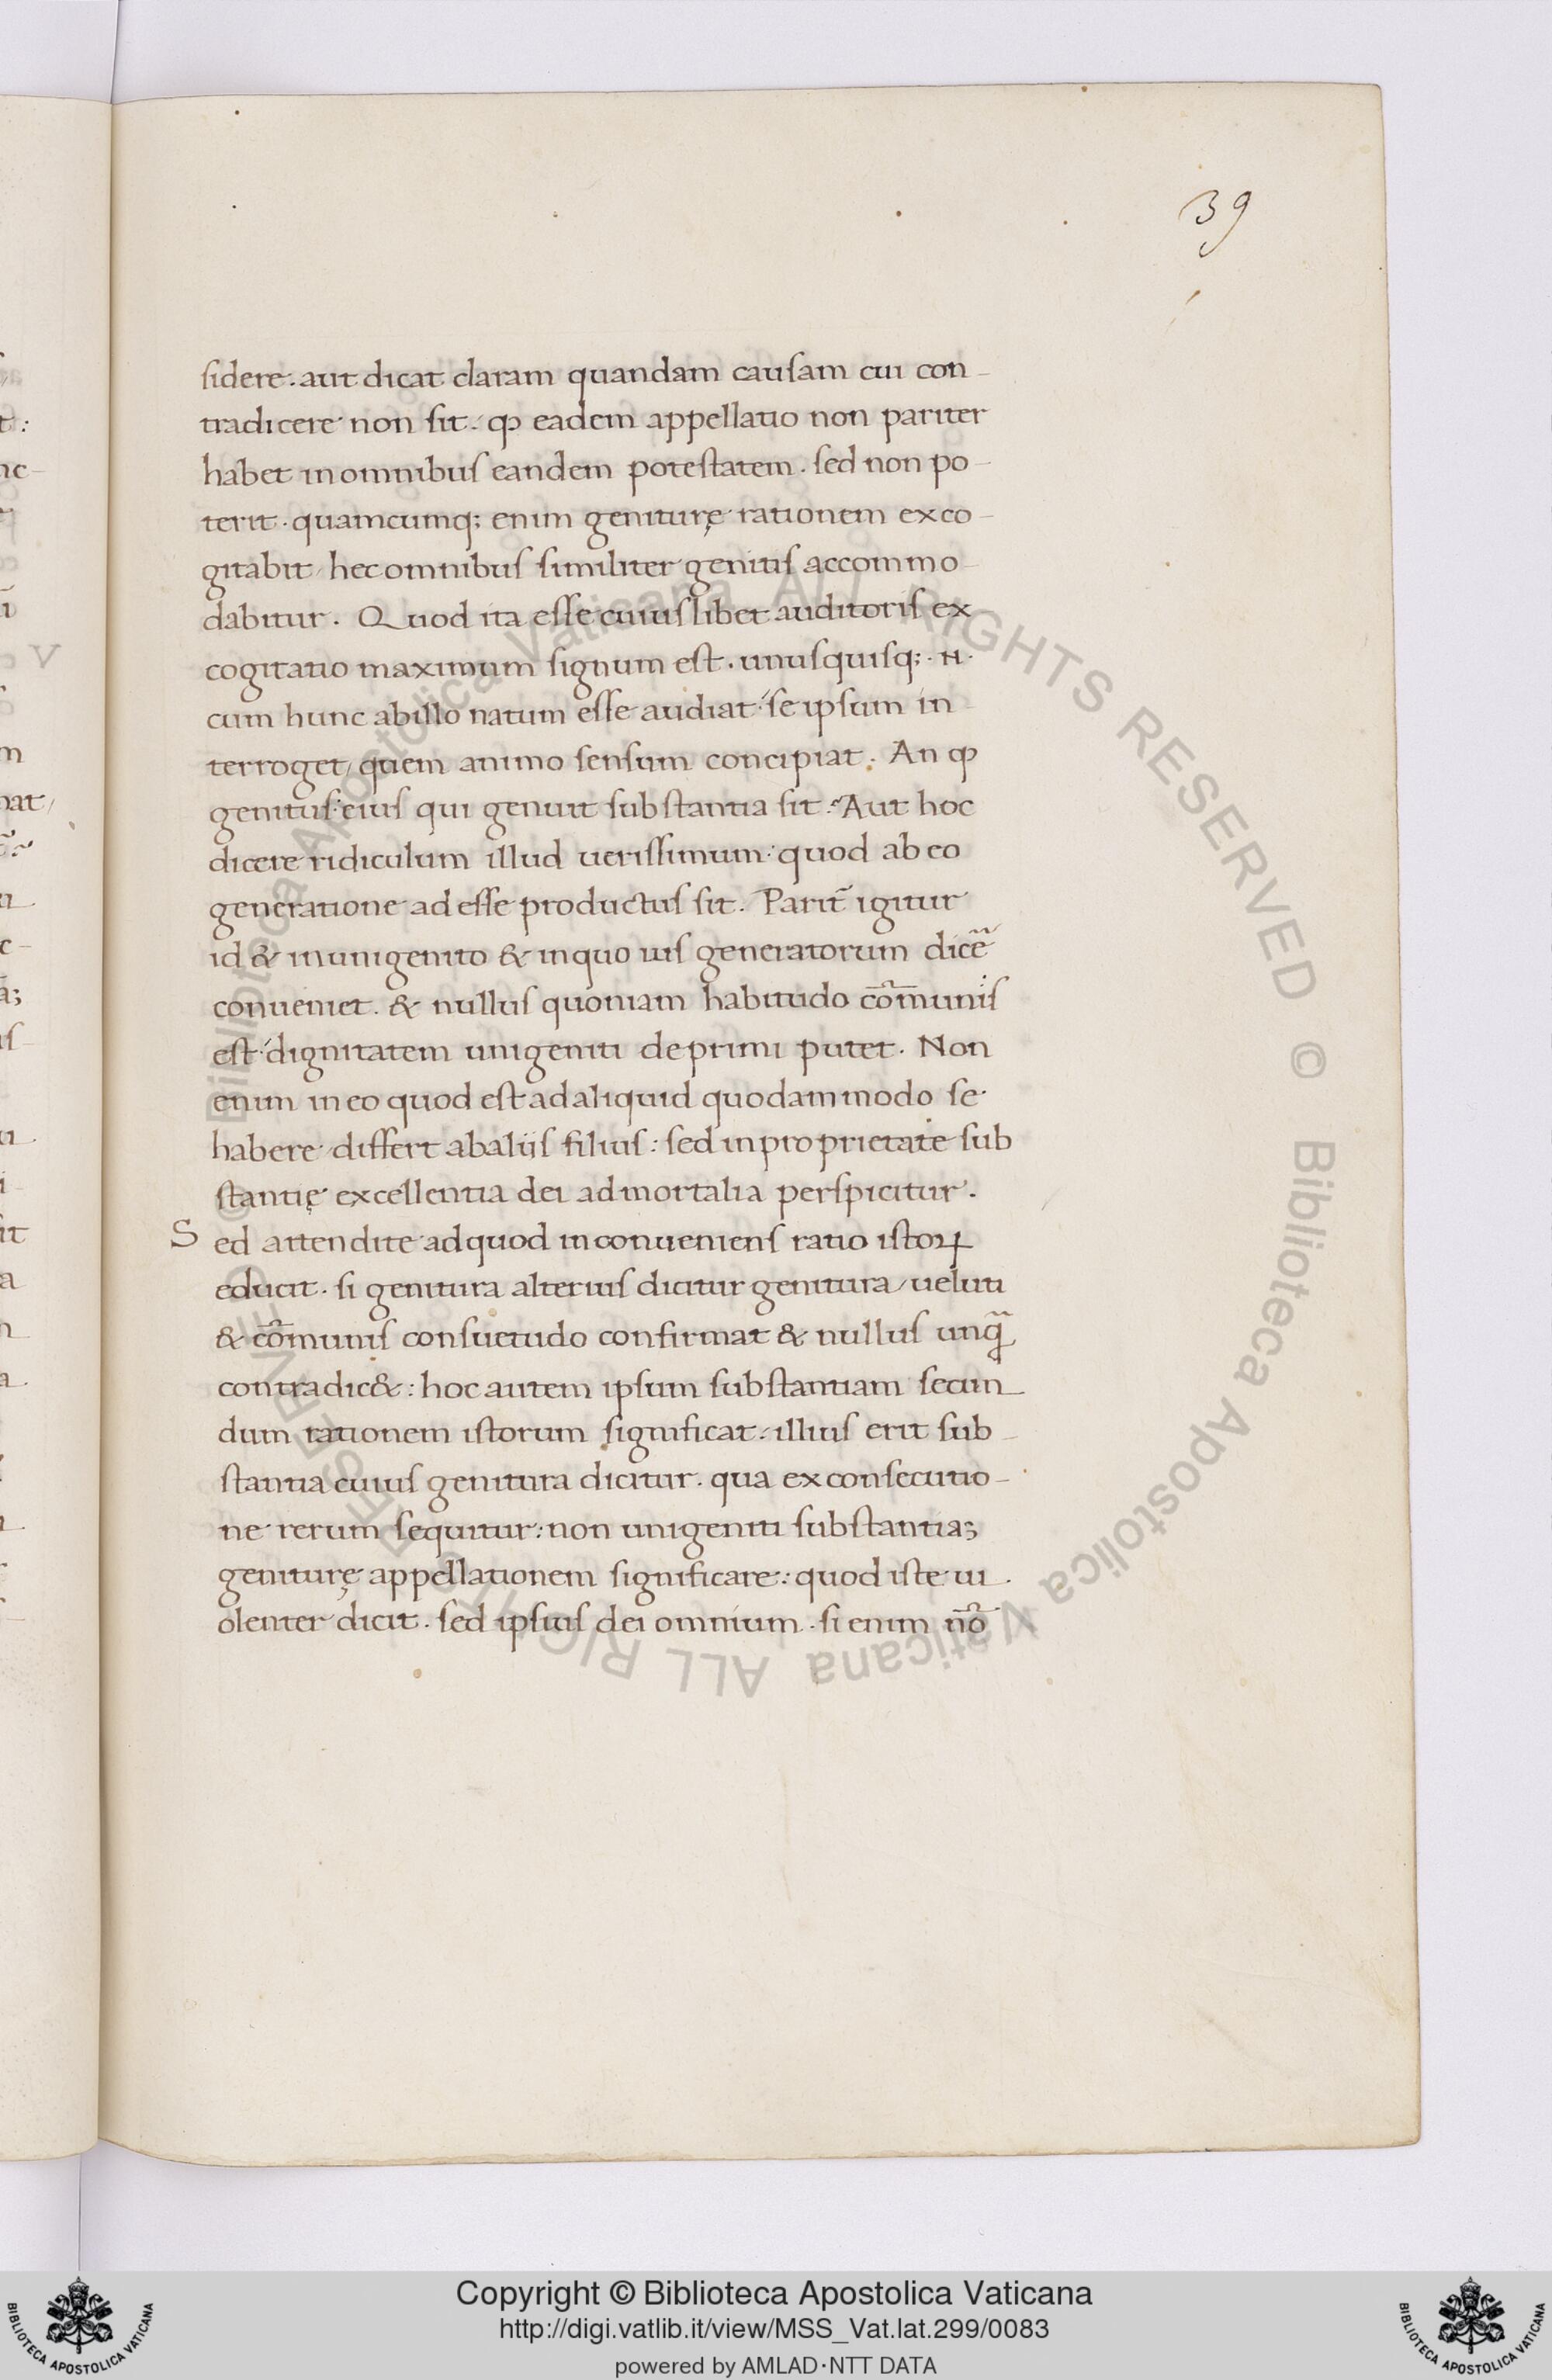 39
sidere. aut dicat claram quandam causam cui con-
tradicere non sit. ꝙ eadem appellatio non pariter
habet in omnibus eandem potestatem. sed non po-
terit. quamcumq; enim geniturę rationem exco-
gitabit, hec omnibus similiter genitis accommo-
dabitur. Quod ita esse cuiuslibet auditoris ex
cogitatio maximum signum est. unusquisq; .n.
cum hunc ab illo natum esse audiat: se ipsum in
terroget, quem animo sensum concipiat. An ꝙ
genitus: eius qui genuit substantia sit? Aut hoc
dicere ridiculum illud uerissimum: quod ab eo
generatione ad esse productus sit. Parit̃ igitur
id & in unigenito & in quo uis generatorum dicẽ
conueniet. & nullus quoniam habitudo cõmunis
est: dignitatem unigeniti deprimi putet. Non
enim in eo quod est ad aliquid quodammodo se
habere differt ab alijs filius: sed in proprietate sub
stantię excellentia dei ad mortalia perspicitur.
Sed attendite ad quod inconueniens ratio istoꝝ
educit. si genitura alterius dicitur genitura, ueluti
& cõmunis consuetudo confirmat & nullus unq̃
contradic&: hoc autem ipsum substantiam secun
dum rationem istorum significat: illius erit sub-
stantia cuius genitura dicitur. qua ex consecutio-
ne rerum sequitur: non unigeniti substantia;
geniturę appellationem significare: quod iste ui-
olenter dicit. sed ipsius dei omnium. si enim nõ
Copyright © Biblioteca Apostolica Vaticana
http://digi.vatlib.it/view/MSS_Vat.lat.299/0083
powered by AMLAD·NTT DATA